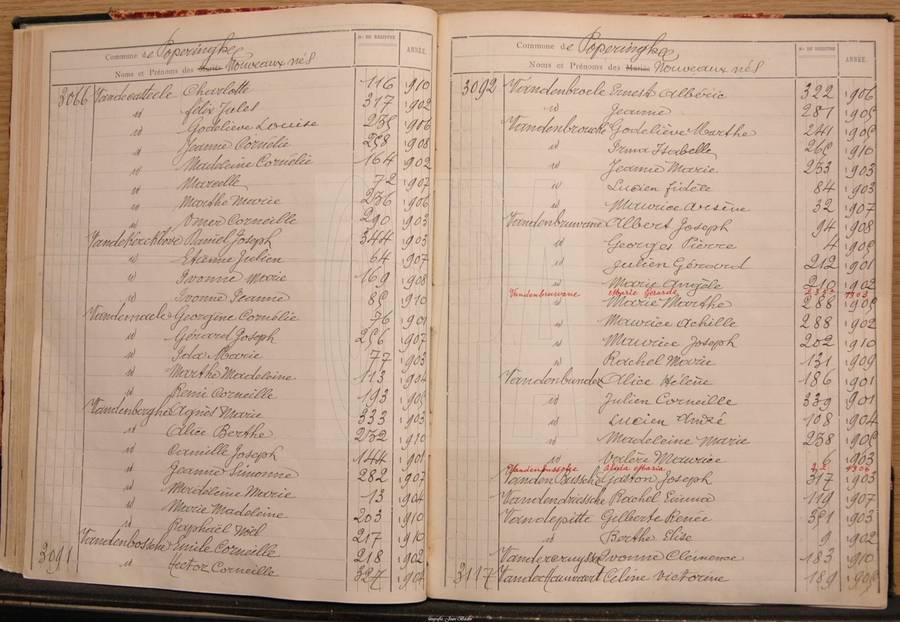 Commune de Poperinghe
Nos DE REGISTRE
ANNÉE.
Noms et Prénoms des Mariés Nouveaux nés
3066 Charlotte 116 1910
id Félix Jules 317 1902
id Godelieve Louise 235 1906
id Jeanne Cornélie 258 1908
id Madeleine Cornélie 164 1902
id Marcelle 72 1907
id Marthe Marie 236 1906
id Omer Corneille 290 1903
Vandekerckhove Daniel Joseph 344 1903
id Etienne Julien 64 1907
id Yvonne Marie 169 1908
id Yvonne Jeanne 1910
Vandemaele Georgine Cornélie 76 1901
id Gérard Joseph 256 1907
id Ida Marie 77 1903
id Marthe Madeleine 113 1904
id Remi Corneille 193 1905
Vandenberghe Agnès Marie 333 1903
id Alice Berthe 232 1910
id Camille Joseph 144 1901
id Jeanne Simonne 282 1907
id Madeleine Marie 13 1904
id Marie Madeleine 203 1910
id Raphaël Noël 217 1910
Vandenbossche Emile Corneille 218 1902
3091 id Hector Corneille 327 1904
Commune de Poperinghe
Nos DE REGISTRE
ANNÉE.
Noms et Prénoms des Mariés Nouveaux nés
3092 Vandenbroele Ernest Albéric 322 1906
id Jeanne 287 1905
Vandenbroucke Godelieve Marthe 241 1905
id Irma Isabelle 265 1910
id Jeanne Marie 253 1903
id Lucien Fidèle 84 1903
id Maurice Arsène 32 1907
Vandenbruwane Albert Joseph 94 1908
id Georges Pierre 4 1905
id Julien Gérard 212 1901
id Marie Angèle 210 1902
Vandenbruwane Marie 1903
Marie Marthe 288 1905
id Maurice Achille 288 1902
id Maurice Joseph 202 1910
id Rachel Marie 131 1909
Vandenbunder Alice Hélène 186 1901
id Julien Corneille 339 1901
id Lucien André 108 1904
id Madeleine Marie 238 1905
id Valère Maurice 6 1903
Vandenbussche Maria 1906
Vanden Bussche Gaston Joseph 317 1903
Vandendriessche Rachel Emma 119 1907
Vandepitte Gilberte Renée 351 1903
id Berthe Elise 9 1902
Yvonne Clémence 183 1910
3117 Céline Victorine 189 1905